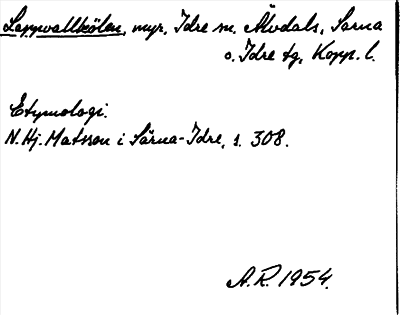 Lappvallkölen, myr, Idre sn, Älvdals, Särna
o. Idre tg, Kopp. l.
Etymologi.
N. Hj. Matsson i Särna-Idre, s. 308.
A.R. 1954.